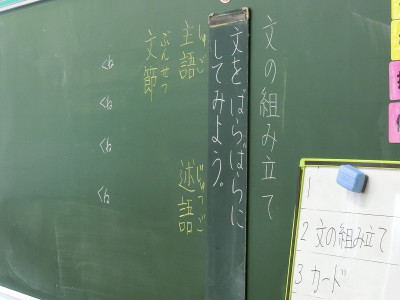 文の組み立て
文をばらばらに
してみよう。
しゅご
主語
じゅつご
述語
ぶんせつ
文節
くね
くね
くね
くね
1
2 文の組み立て
3 カード